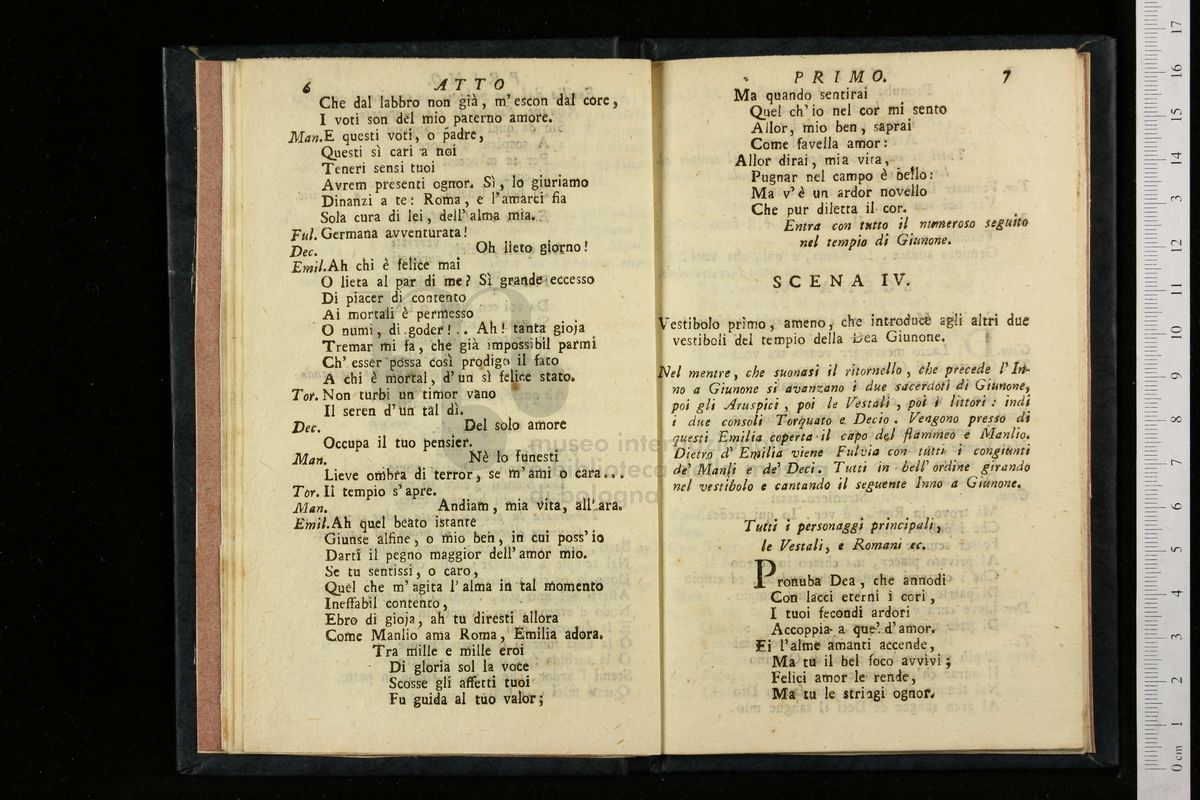 6 ATTO
Che dal labbro non già, m'escon dal core,
I voti son del mio paterno amore.
Man. E questi voti, o padre,
Questi sì cari a noi
Teneri sensi tuoi
Avrem presenti ognor. Sì, lo giuriamo
Dinanzi a te: Roma, e l'amarci fia
Sola cura di lei, dell'alma mia.
Ful. Germana avventurata!
Dec. Oh lieto giorno!
Emil. Ah chi è felice mai
O lieta al par di me? Sì grande eccesso
Di piacer di contento
Ai mortali è permesso
O numi, di goder!.. Ah! tanta gioja
Tremar mi fa, che già impossibil parmi
Ch'esser possa così prodigo il fato
A chi è mortal, d'un sì felice stato.
Tor. Non turbi un timor vano
Il seren d'un tal dì.
Dec. Del solo amore
Occupa il tuo pensier.
Man. Nè lo funesti
Lieve ombra di terror, se m'ami o cara...
Tor. Il tempio s'apre.
Man. Andiam, mia vita, all'ara.
Emil. Ah quel beato istante
Giunse alfine, o mio ben, in cui poss'io
Darti il pegno maggior dell'amor mio.
Se tu sentissi, o caro,
Quel che m'agita l'alma in tal momento
Ineffabil contento,
Ebro di gioja, ah tu diresti allora
Come Manlio ama Roma, Emilia adora.
Tra mille e mille eroi
Di gloria sol la voce
Scosse gli affetti tuoi
Fu guida al tuo valor;
PRIMO. 7
Ma quando sentirai
Quel ch'io nel cor mi sento
Allor, mio ben, saprai
Come favella amor:
Allor dirai, mia vita,
Pugnar nel campo è bello:
Ma v'è un ardor novello
Che pur diletta il cor.
Entra con tutto il numeroso seguito
nel tempio di Giunone.
SCENA IV.
Vestibolo primo, ameno, che introduce agli altri due
vestiboli del tempio della Dea Giunone.
Nel mentre, che suonasi il ritornello, che precede l'In-
no a Giunone si avanzano i due sacerdoti di Giunone,
poi gli Aruspici, poi le Vestali, poi i littori: indi
i due consoli Torquato e Decio. Vengono presso di
questi Emilia coperta il capo del flammeo e Manlio.
Dietro d'Emilia viene Fulvia con tutti i congiunti
de' Manlj e de' Deci. Tutti in bell'ordine girando
nel vestibolo e cantando il seguente Inno a Giunone.
Tutti i personaggi principali,
le Vestali, e Romani ec.
Pronuba Dea, che annodi
Con lacci eterni i cori,
I tuoi fecondi ardori
Accoppia a que' d'amor.
Ei l'alme amanti accende,
Ma tu il bel foco avvivi;
Felici amor le rende,
Ma tu le stringi ognor.
museo internazionale
biblioteca
di bologna
17
16
15
14
13
12
11
10
9
8
7
6
5
4
3
2
1
0 cm